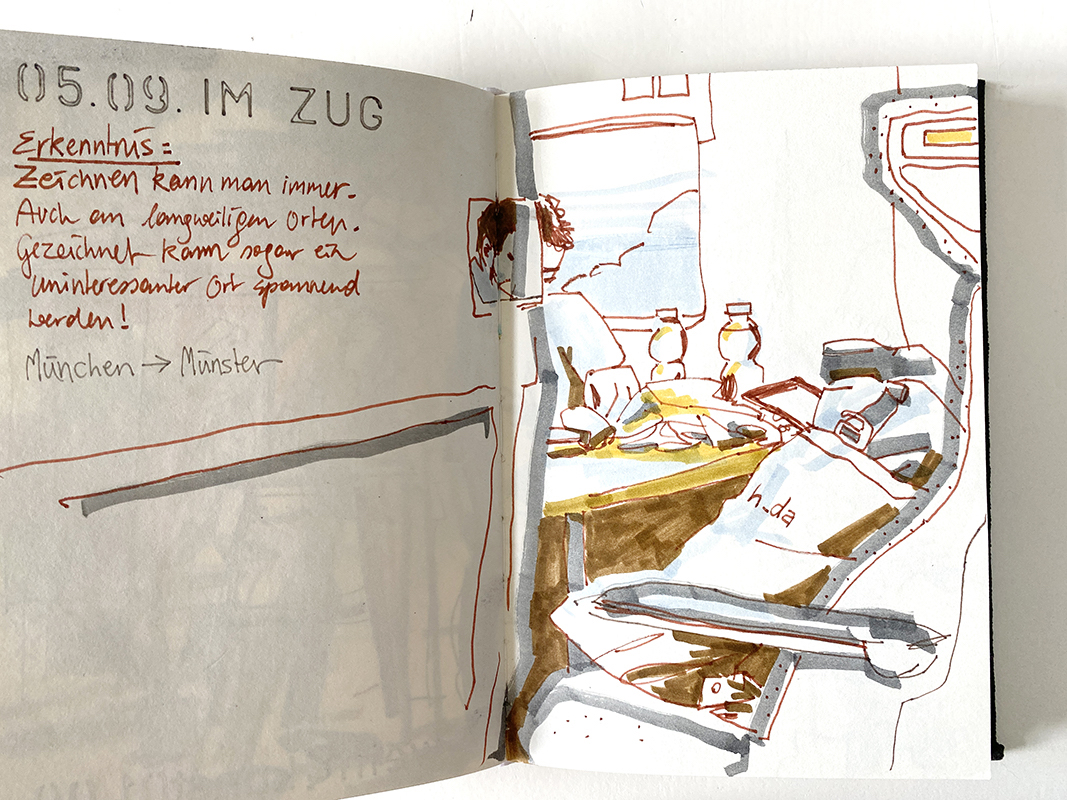 05.09. IM ZUG
Erkenntnis:
Zeichnen kann man immer.
Auch an langweiligen Orten.
Gezeichnet kann sogar ein
uninteressanter Ort spannend
werden!
München → Münster
h_da